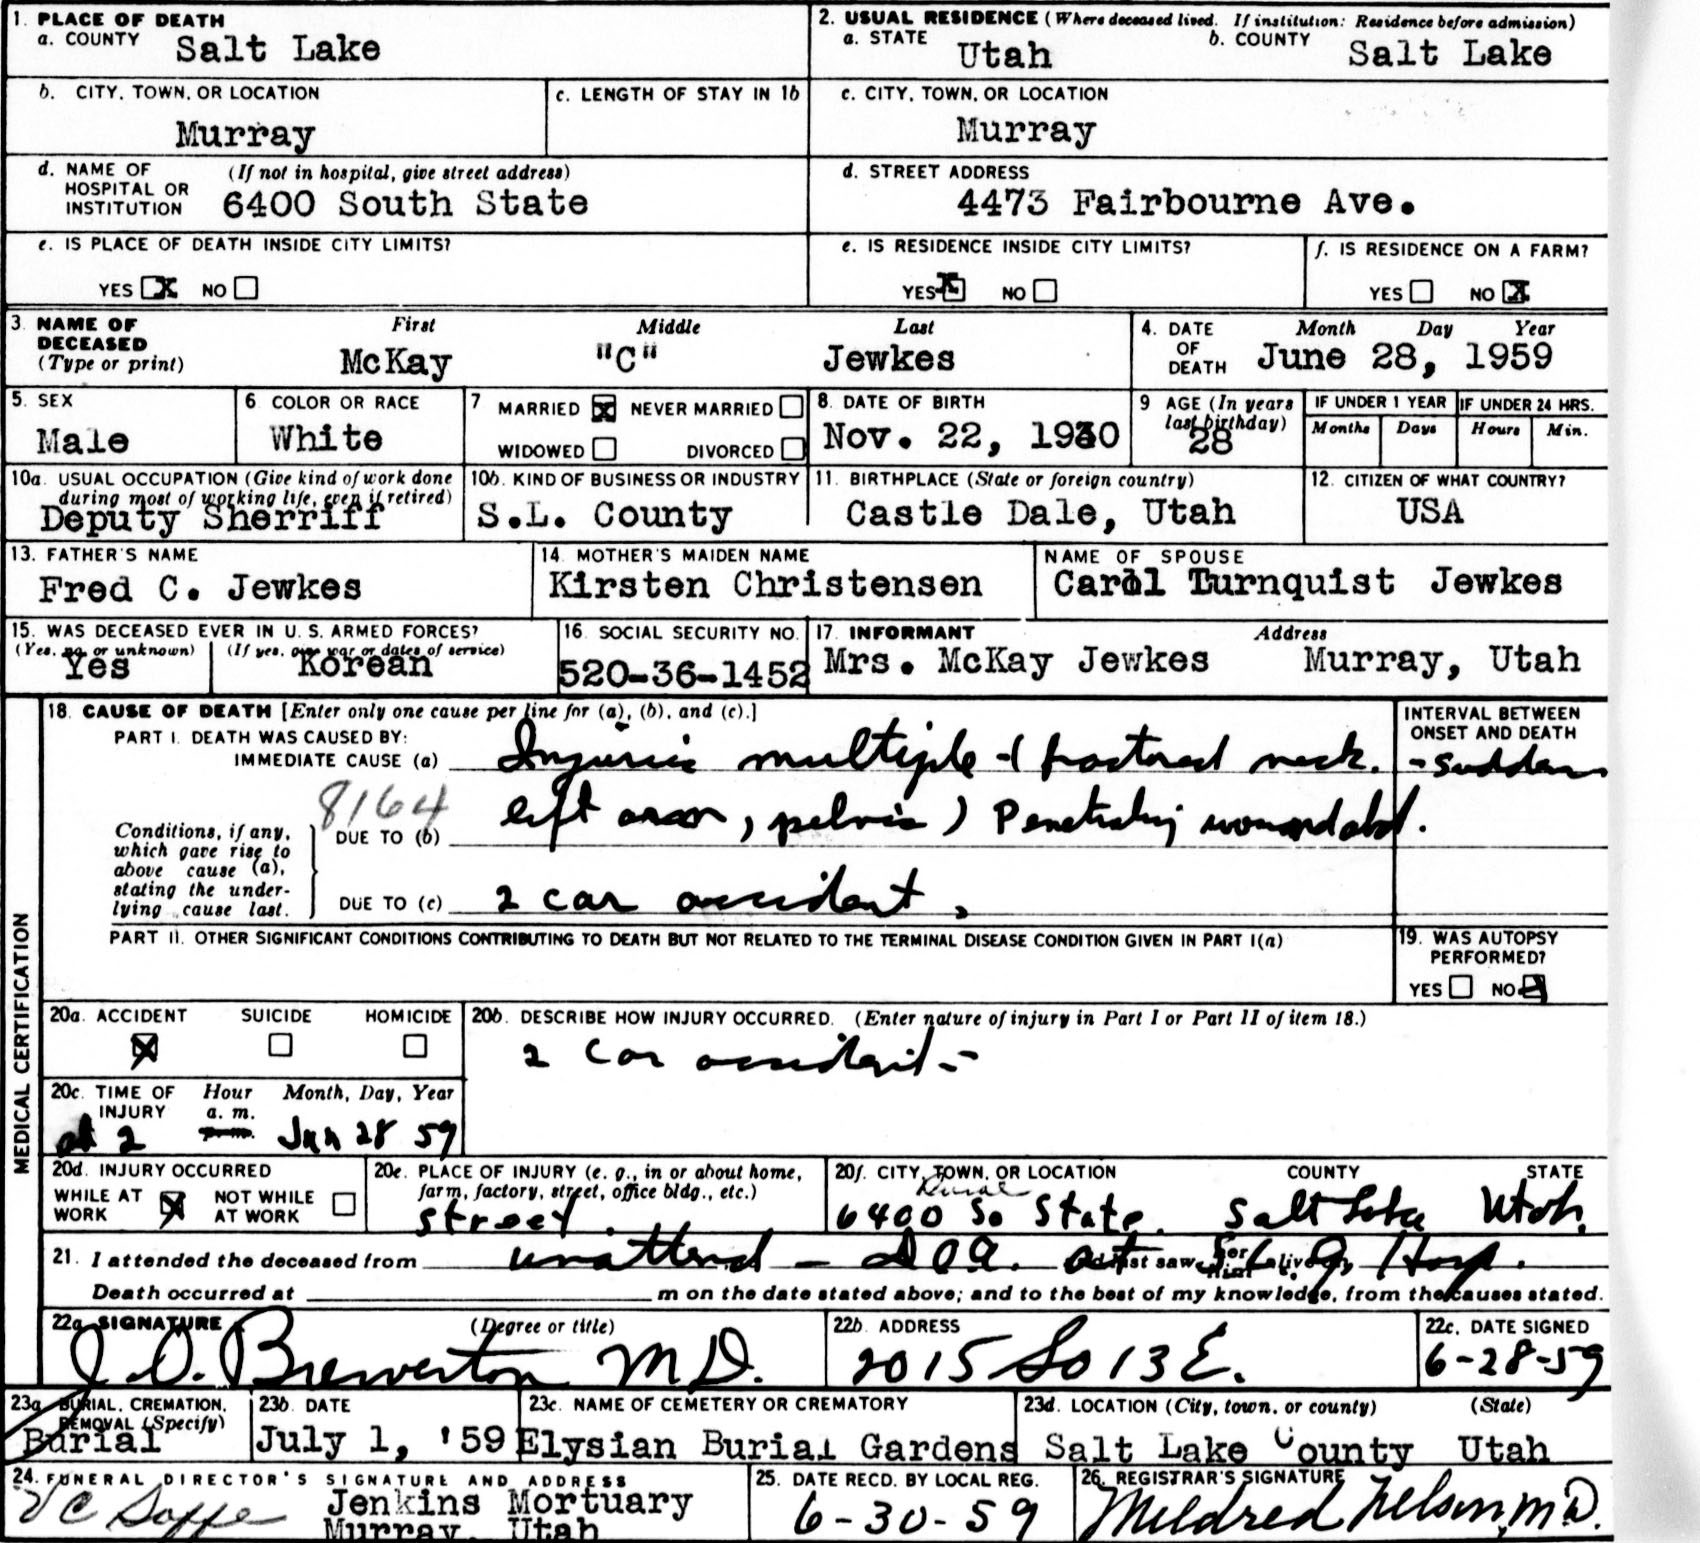 1. PLACE OF DEATH
a. COUNTY Salt Lake
2. USUAL RESIDENCE (Where deceased lived. If institution: Residence before admission)
a. STATE Utah b. COUNTY Salt Lake
b. CITY, TOWN, OR LOCATION
Murray
c. LENGTH OF STAY IN 1b
c. CITY, TOWN, OR LOCATION
Murray
d. NAME OF HOSPITAL OR INSTITUTION (If not in hospital, give street address)
6400 South State
d. STREET ADDRESS
4473 Fairbourne Ave.
e. IS PLACE OF DEATH INSIDE CITY LIMITS?
YES X NO
e. IS RESIDENCE INSIDE CITY LIMITS?
YES X NO
f. IS RESIDENCE ON A FARM?
YES NO X
3. NAME OF DECEASED (Type or print) First Middle Last
McKay "C" Jewkes
4. DATE OF DEATH Month Day Year
June 28, 1959
5. SEX
Male
6. COLOR OR RACE
White
7 MARRIED X NEVER MARRIED
WIDOWED DIVORCED
8. DATE OF BIRTH
Nov. 22, 1930
9 AGE (In years last birthday)
28
IF UNDER 1 YEAR IF UNDER 24 HRS.
Months Days Hours Min.
10a. USUAL OCCUPATION (Give kind of work done during most of working life, even if retired)
Deputy Sherriff
10b. KIND OF BUSINESS OR INDUSTRY
S.L. County
11. BIRTHPLACE (State or foreign country)
Castle Dale, Utah
12. CITIZEN OF WHAT COUNTRY?
USA
13. FATHER'S NAME
Fred C. Jewkes
14. MOTHER'S MAIDEN NAME
Kirsten Christensen
NAME OF SPOUSE
Carol Turnquist Jewkes
15. WAS DECEASED EVER IN U. S. ARMED FORCES?
(Yes, no, or unknown) (If yes, give war or dates of service)
Yes Korean
16. SOCIAL SECURITY NO.
520-36-1452
17. INFORMANT Address
Mrs. McKay Jewkes Murray, Utah
MEDICAL CERTIFICATION
18. CAUSE OF DEATH [Enter only one cause per line for (a), (b), and (c).]
PART I. DEATH WAS CAUSED BY:
IMMEDIATE CAUSE (a) Injuries multiple - (fractured neck.
INTERVAL BETWEEN ONSET AND DEATH
- sudden
8164
Conditions, if any, which gave rise to above cause (a), stating the underlying cause last.
DUE TO (b) left arm, pelvis) Penetrating wound abd.
DUE TO (c) 2 car accident,
PART II. OTHER SIGNIFICANT CONDITIONS CONTRIBUTING TO DEATH BUT NOT RELATED TO THE TERMINAL DISEASE CONDITION GIVEN IN PART I(a)
19. WAS AUTOPSY PERFORMED?
YES NO
20a. ACCIDENT SUICIDE HOMICIDE
X
20b. DESCRIBE HOW INJURY OCCURRED. (Enter nature of injury in Part I or Part II of item 18.)
2 car accident -
20c. TIME OF INJURY Hour Month, Day, Year
a. m.
p. m.
at 2 Jun 28 59
20d. INJURY OCCURRED
WHILE AT WORK X NOT WHILE AT WORK
20e. PLACE OF INJURY (e. g., in or about home, farm, factory, street, office bldg., etc.)
street.
20f. CITY, TOWN, OR LOCATION COUNTY STATE
Rural
6400 So State. Salt Lake Utah.
21. I attended the deceased from unattend - DOA. at S. L. G Hosp. and last saw her him alive on
Death occurred at m on the date stated above; and to the best of my knowledge, from the causes stated.
22a. SIGNATURE (Degree or title)
J. O. Brewerton M D.
22b. ADDRESS
2015 So 13 E.
22c. DATE SIGNED
6-28-59
23a. BURIAL, CREMATION, REMOVAL (Specify)
Burial
23b. DATE
July 1, '59
23c. NAME OF CEMETERY OR CREMATORY
Elysian Burial Gardens
23d. LOCATION (City, town, or county) (State)
Salt Lake County Utah
24. FUNERAL DIRECTOR'S SIGNATURE AND ADDRESS
Jenkins Mortuary
Murray, Utah
25. DATE RECD. BY LOCAL REG.
6-30-59
26. REGISTRAR'S SIGNATURE
Mildred Nelson, M D.